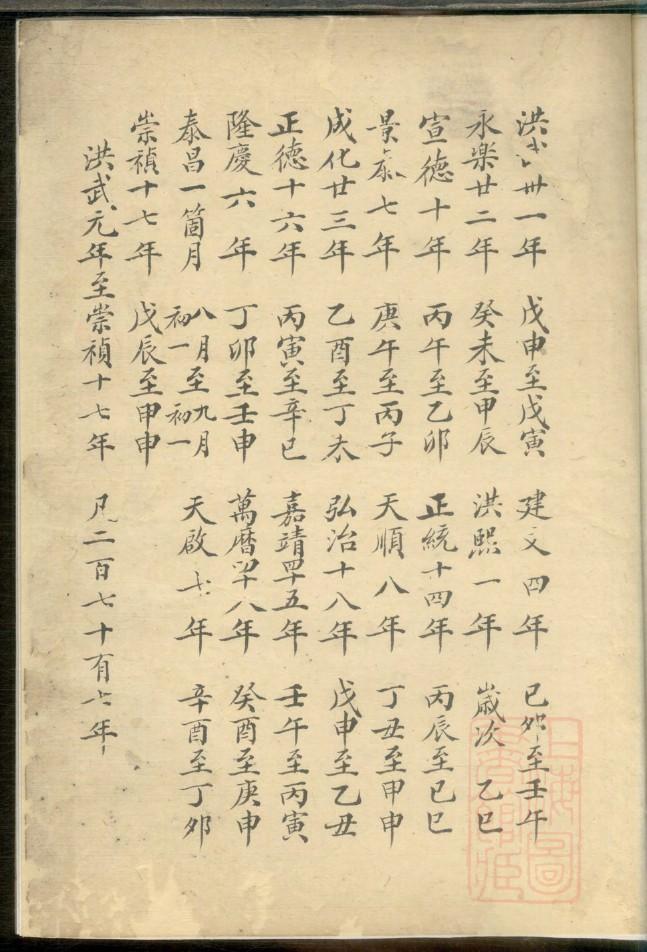 洪武卅一年 戊申至戊寅 建文四年 己夘至壬午
永樂廿二年 癸未至甲辰 洪熙一年 歲次乙巳
宣德十年 丙午至乙卯 正統十四年 丙辰至己巳
景泰七年 庚午至丙子 天順八年 丁丑至甲申
成化廿三年 乙酉至丁未 弘治十八年 戊申至乙丑
正德十六年 丙寅至辛巳 嘉靖四十五年 壬午至丙寅
隆慶六年 丁卯至壬申 萬曆四十八年 癸酉至庚申
泰昌一箇月 八月初一至九月初一 天啟七年 辛酉至丁夘
崇禎十七年 戊辰至甲申
洪武元年至崇禎十七年 凡二百七十有七年
上海圖書館藏